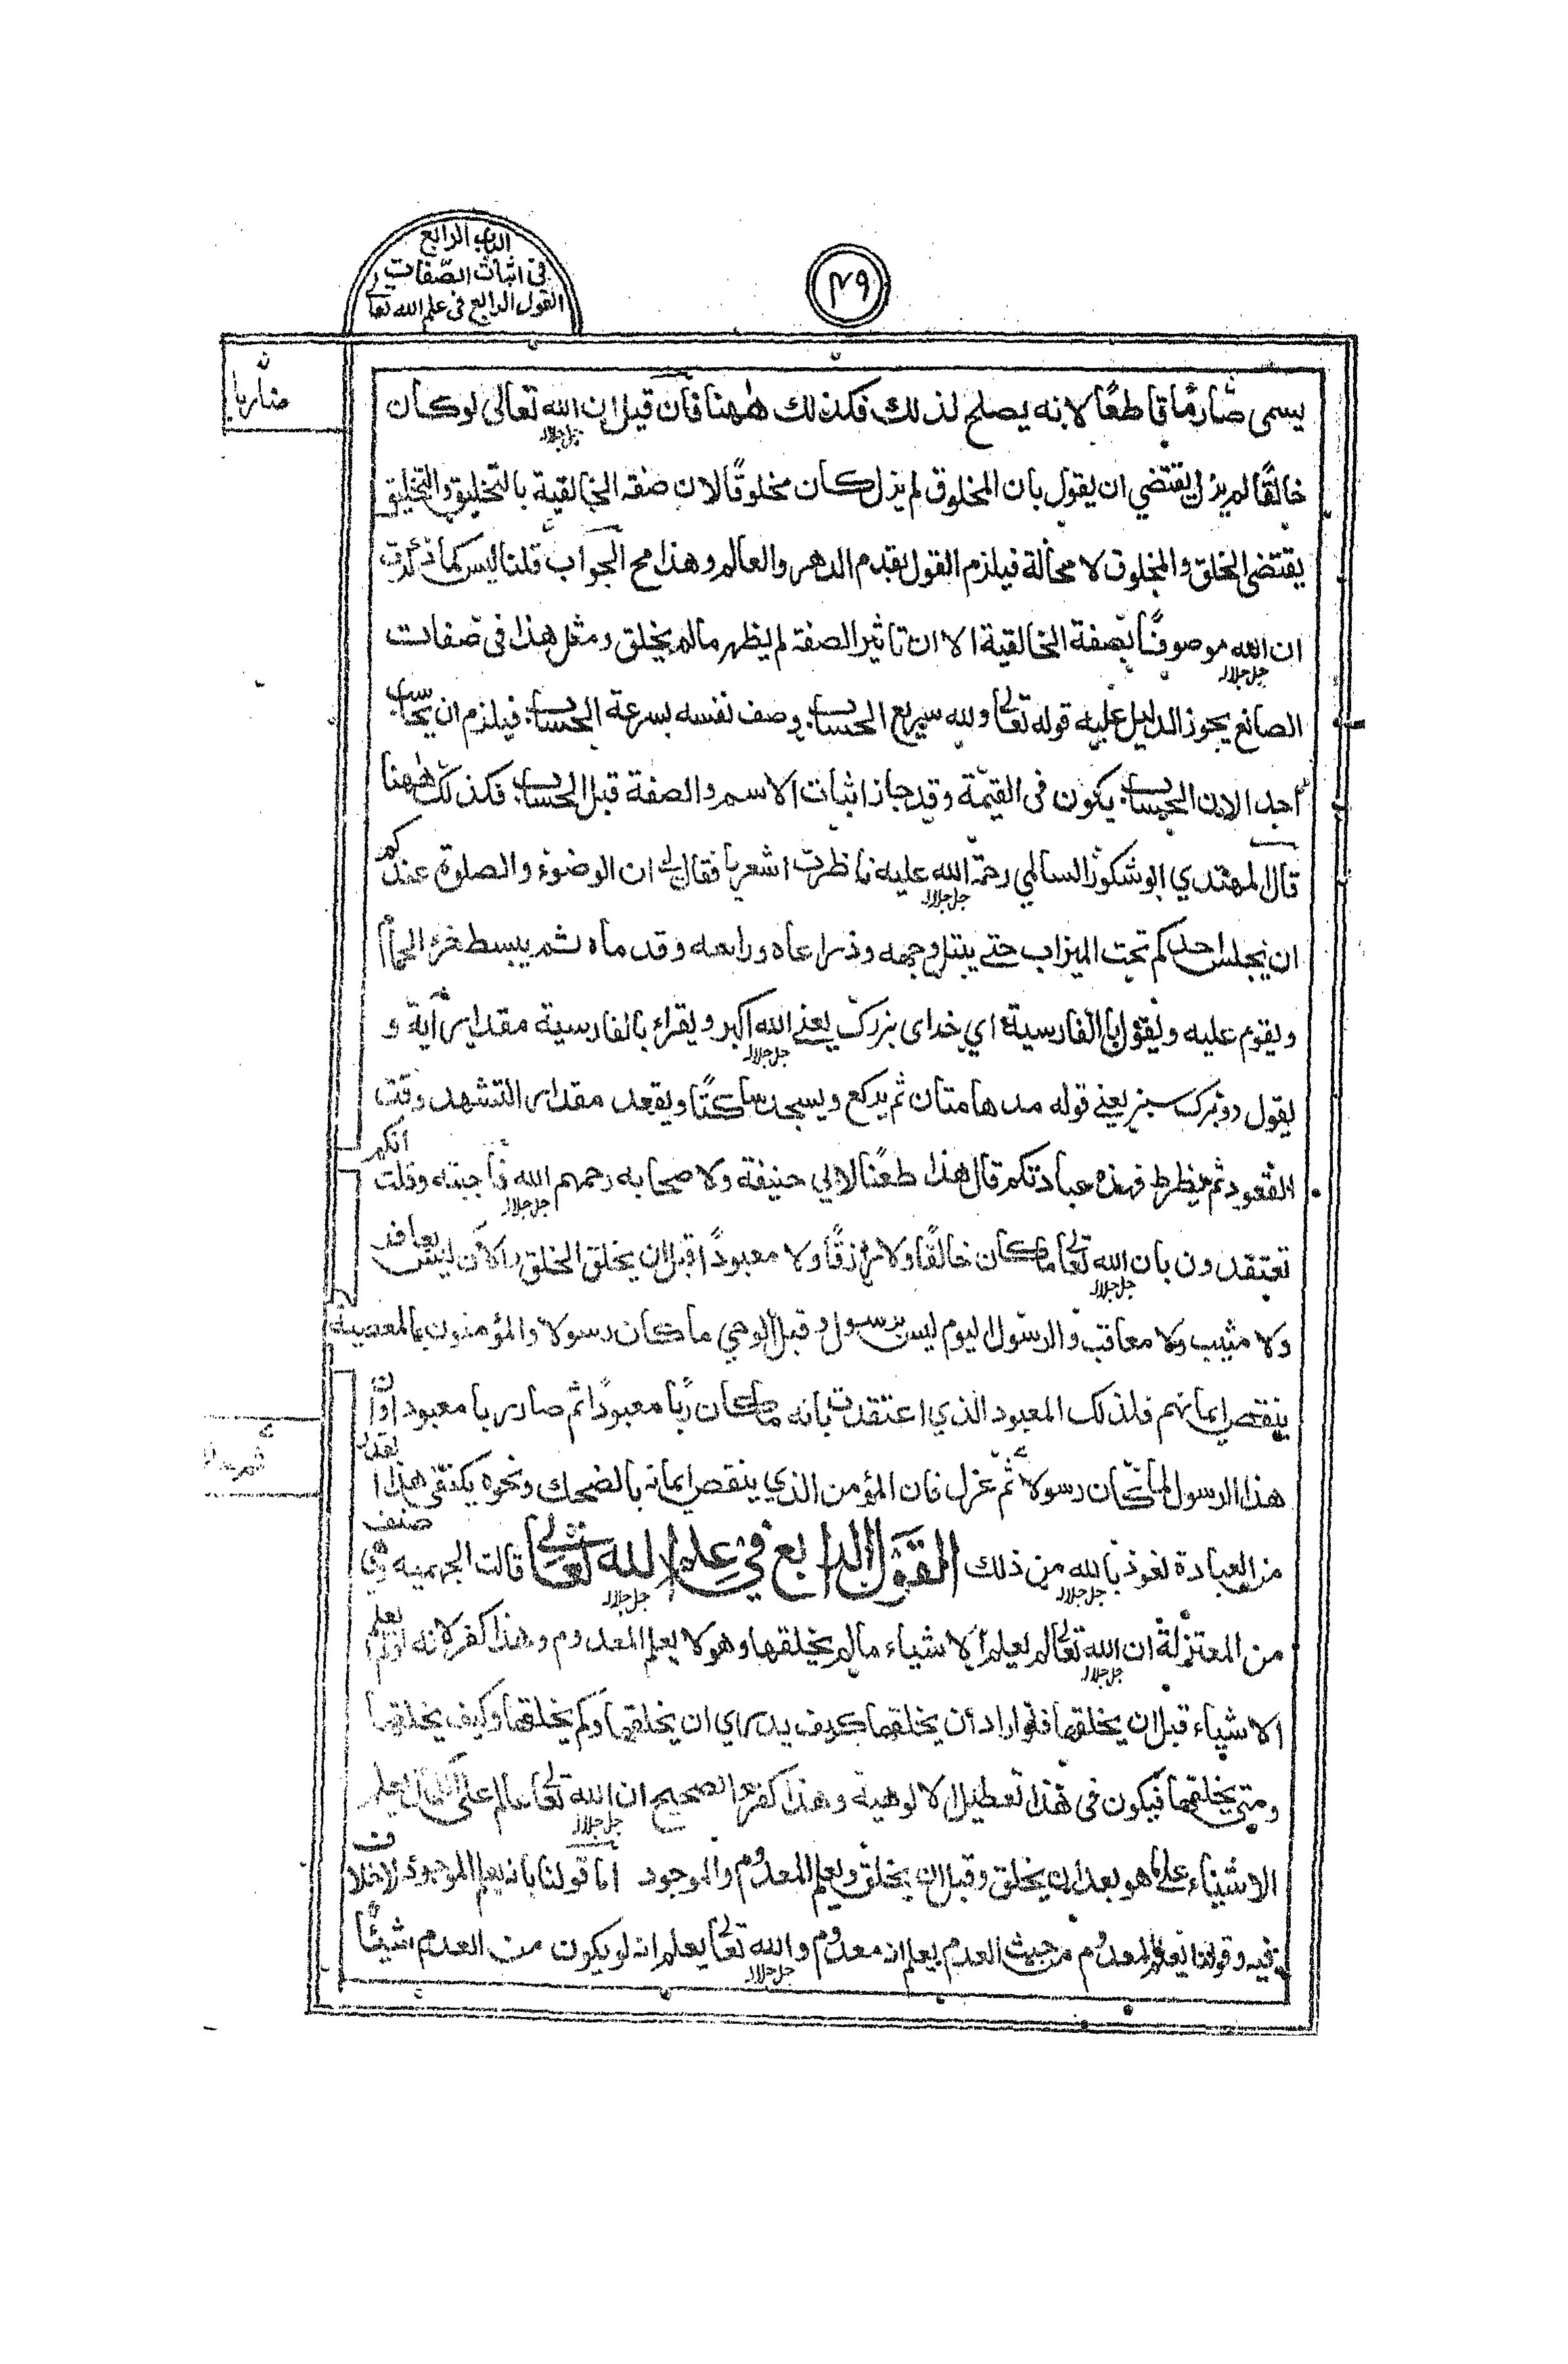 الباب الرابع
في اثبات الصّفات
القول الرابع في علم الله تعالى
٤٩
يسمى صارمًا قاطعًا لانه يصلح لذلك فكذلك ههنا فان قيل ان الله تعالى لو كان
جل جلاله
خالقًا لم يزل يقتضي ان يقول بان المخلوق لم يزل كان مخلوقًا لان صفة الخالقية بالتخليق والتخليق
يقتضى الخلق والمخلوق لا محالة فيلزم القول بقدم الدهر والعالم وهذا مح الجواب قلنا ليس كما ذكرت
ان الله موصوفًا بصفة الخالقية الا ان تاثير الصفة لم يظهر ما لم يخلق ومثل هذا فى صفات
جل جلاله
الصانع يجوز الدليل عليه قوله تعالى والله سريع الحساب وصف نفسه بسرعة الحساب فيلزم ان يحاسب
احد الان الحساب يكون فى القيمة وقد جاز اثبات الاسم والصفة قبل الحساب فكذلك ههنا
قال المهتدي ابو شكور السالمي رحمة الله عليه ناظرت اشعريا فقال لى ان الوضوء والصلوة عندكم
جل جلاله
ان يجلس احدكم تحت الميزاب حتے يبتل وجهه وذراعاه ورابعه وقدماه ثم يبسط خرء الحمام
ويقوم عليه ويقول بالفارسية اي خداى بزرك يعنے الله اكبر ويقراء بالفارسية مقدار آية و
جل جلاله
يقول دو برك سبز يعنے قوله مدهامتان ثم يركع ويسجد ساكتًا ويقعد مقدار التشهد وقت
القعود ثم يظرط فهذه عبادتكم قال هذا طعنًا لابي حنيفة ولاصحابه رحمهم الله فاجبته وقلت انكم
جل جلاله
تعتقدون بان الله تعالى ما كان خالقًا ولا رازقًا ولا معبودًا قبل ان يخلق الخلق والآن ليس بغافر
جل جلاله
ولا مثيب ولا معاقب والرسول اليوم ليس برسول وقبل الوحي ما كان رسولا والمؤمنون بالمعصية
ينقص ايمانهم فلذلك المعبود الذي اعتقدت بانه ما كان ربا معبودًا ثم صار ربا معبودا وان
هذا الرسول لما كان رسولا ثم عزل فان المؤمن الذي ينقص ايمانه بالضحك ونحوه يكفى هذا القدر
من العبادة نعوذ بالله من ذلك القول الرابع في علم الله تعالى قالت الجهمية وفي صنف
جل جلاله
جل جلاله
من المعتزلة ان الله تعالى لم يعلم الاشياء ما لم يخلقها وهو لا يعلم المعدوم وهذا كفر لانه لو لم يعلم
جل جلاله
الاشياء قبل ان يخلقها فلو اراد ان يخلقها كيف يدراي ان يخلقها وكم يخلقها وكيف يخلقها
ومتى يخلقها فيكون فى هذا تعطيل الالوهية وهذا كفر والصحيح ان الله تعالى عالم على الكمال يعلم
جل جلاله
الاشياء على ما هو بعد ان يخلق وقبل ان يخلق ويعلم المعدوم والموجود اما قولنا بانه يعلم الموجود لاخلاف
فيه وقولنا يعلم المعدوم من حيث العدم يعلم انه معدوم والله تعالى يعلم انه لو يكون من العدم شيئًا
جل جلاله